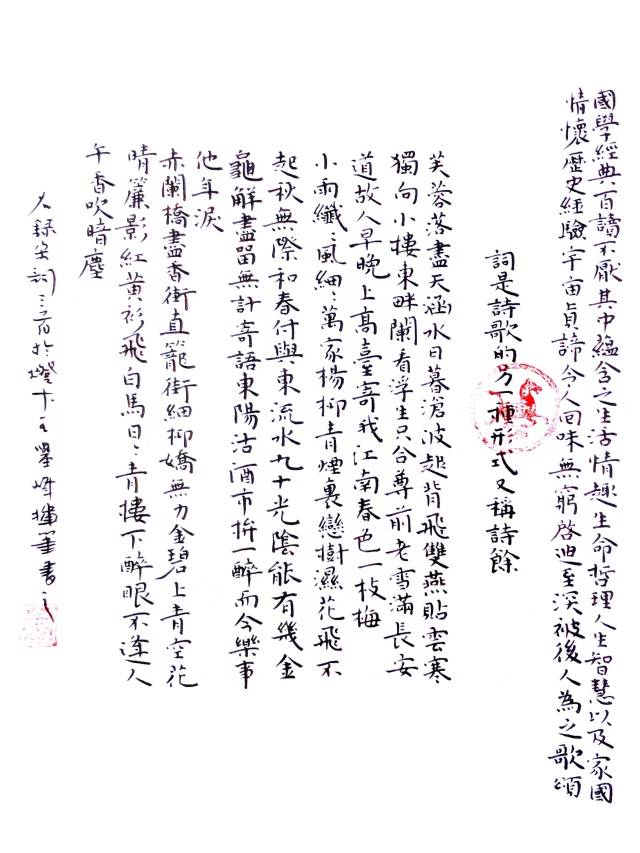 國學經典百讀不厭其中蘊含之生活情趣生命哲理人生智慧以及家國
情懷歷史經驗宇宙貞諦令人回味無窮啓迪至深被後人為之歌頌
詞是詩歌的另一種形式又稱詩餘
芙蓉落盡天涵水日暮滄波起背飛雙燕貼雲寒
獨向小樓東畔闌看浮生只合尊前老雪滿長安
道故人早晚上高臺寄我江南春色一枝梅
小雨纖纖風細細萬家楊柳青煙裏戀樹濕花飛不
起秋無際和春付與東流水九十光陰能有幾金
龜解盡留無計寄語東陽沽酒市拚一醉而今樂事
他年淚
赤闌橋盡香街直籠街細柳嬌無力金碧上青空花
晴簾影紅黃衫飛白馬日日青樓下醉眼不逢人
午香吹暗塵